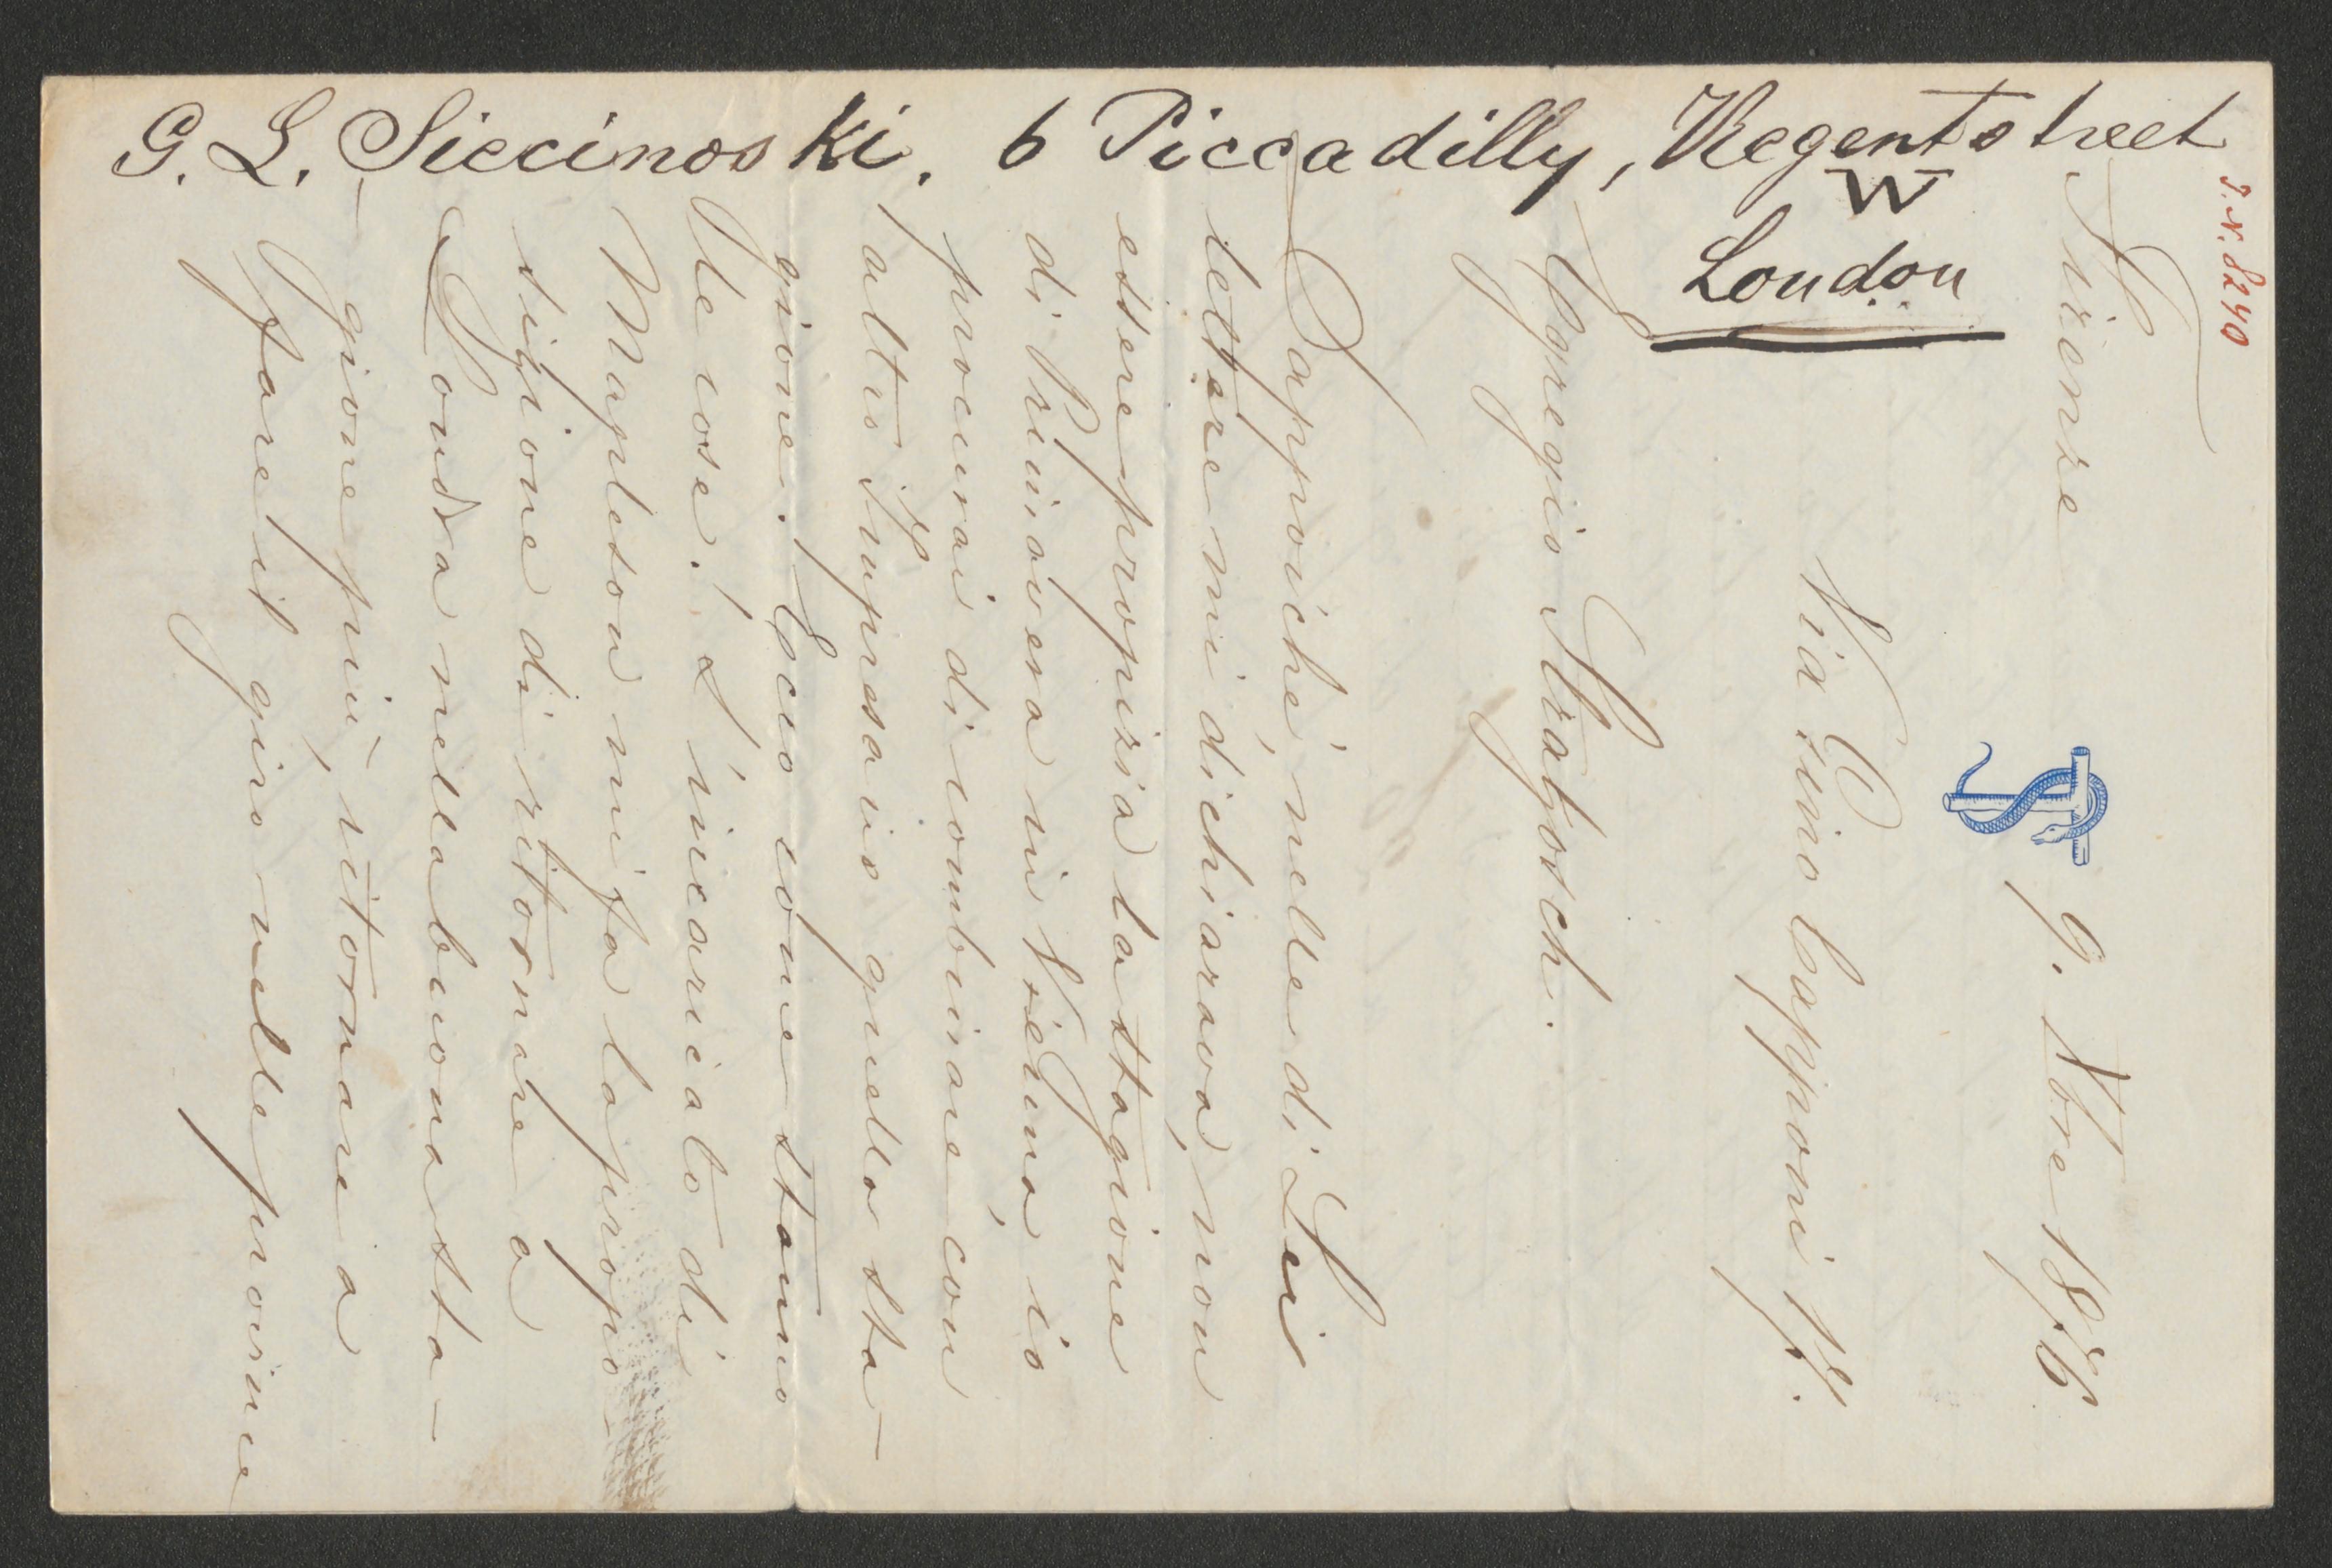 G. L. Siccinoski. 6 Piccadilly, Regentstreet
W
London
I.N. 8240
Firenze 9. Xbre 1876.
Via Gino Capponi 17.
Egregio Strakosch.
Dappoiché, nelle di Lei
lettere mi dichiarava, non
essere propizia la stagione
di Primavera in Vienna, io
procurai di combinare, con
altro Impresario quella sta-
gione. Ecco come stanno
le cose. L'incaricato di
Mapleson mi fa la propo-
sizione di ritornare a
Londra nella buona sta-
gione più, ritornare a
fare il giro nelle provincie